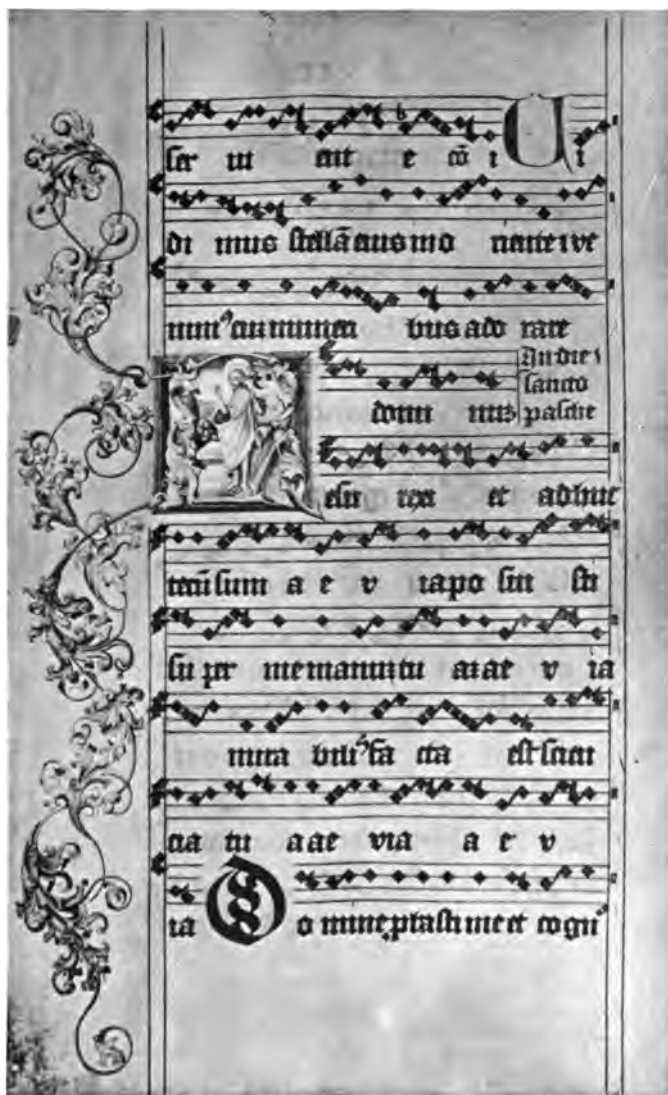 ser ui ent e cō i U i
di mus stellā eius in o riente i ve
nim⁹ cū muneri bus ado rare
domi nuz
In die
sancto
pasche
R esu rexi et adhuc
tecū sum a e v ia po sui sti
su per me manuz tu az ae v ia
mira bil⁹ fa cta est scien
cia tu a ae via a e v
ia D o mine p̱basti me et cogn